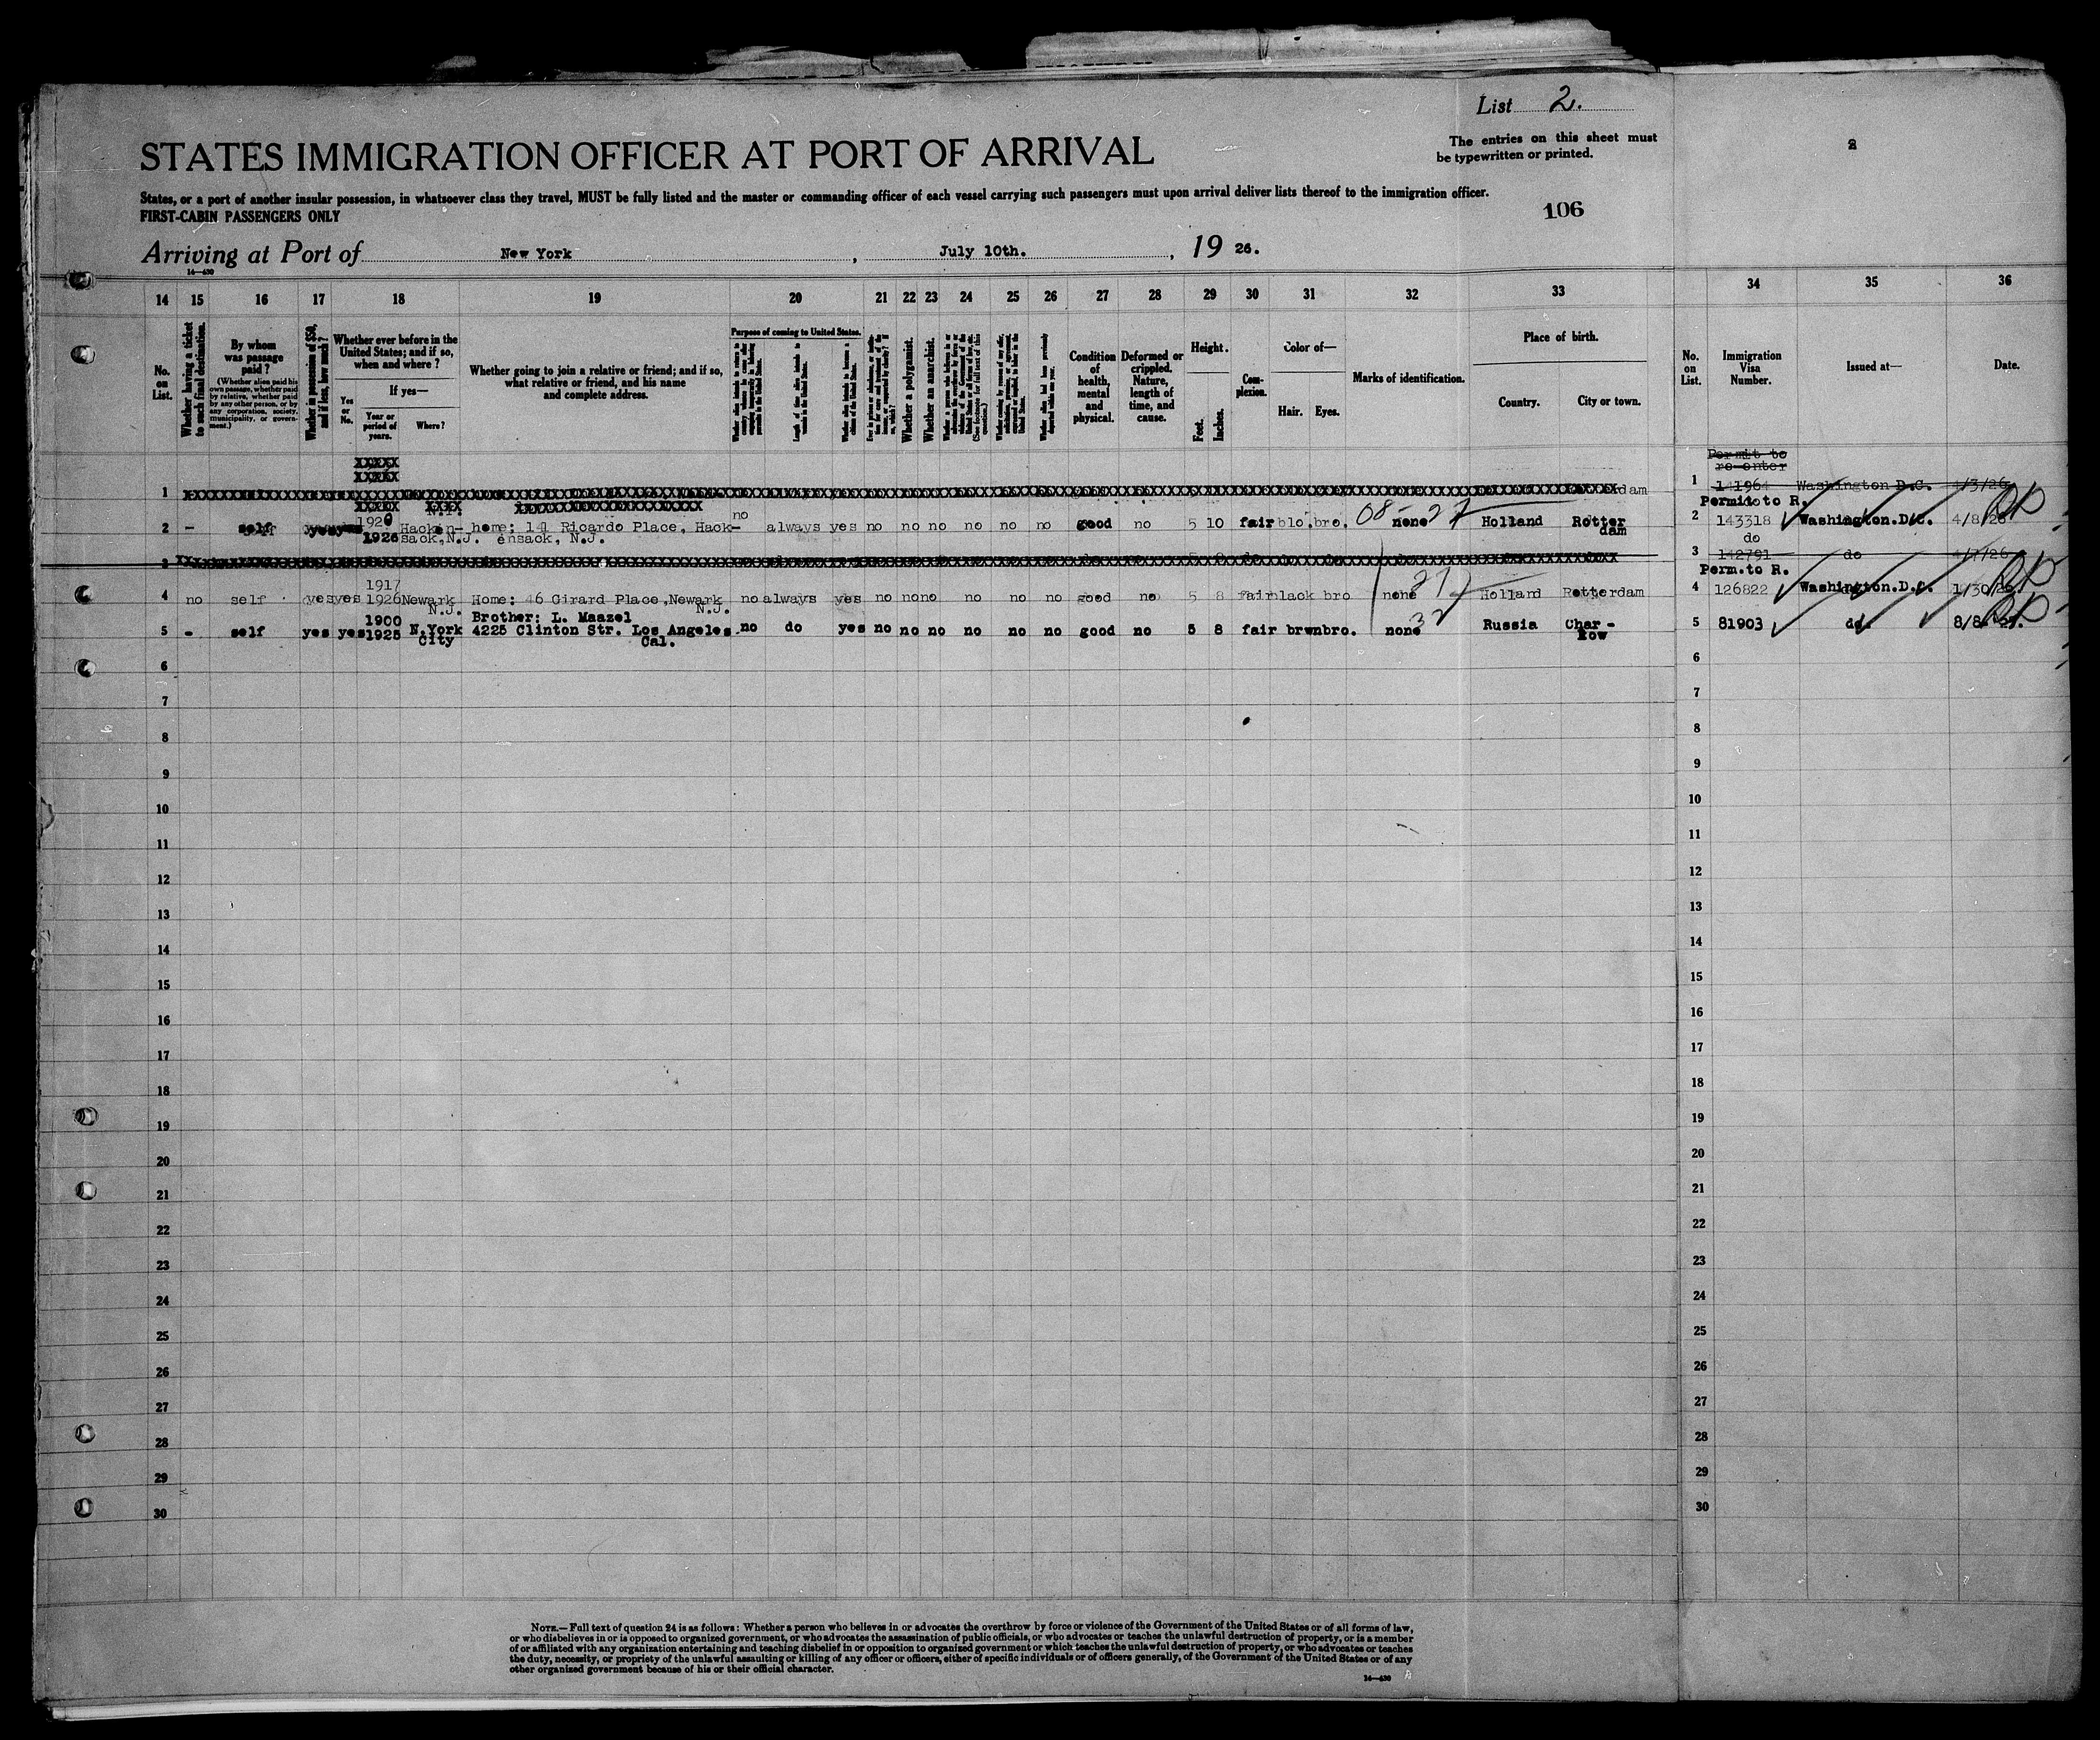 List 2.
STATES IMMIGRATION OFFICER AT PORT OF ARRIVAL
The entries on this sheet must
be typewritten or printed.
2
States, or a port of another insular possession, in whatsoever class they travel, MUST be fully listed and the master or commanding officer of each vessel carrying such passengers must upon arrival deliver lists thereof to the immigration officer.
FIRST-CABIN PASSENGERS ONLY
106
Arriving at Port of New York, July 10th., 19 26.
14—430
14 15 16 17 18 19 20 21 22 23 24 25 26 27 28 29 30 31 32 33 34 35 36
No. on List.
Whether having a ticket to such final destination.
By whom was passage paid?
(Whether alien paid his own passage, whether paid by relative, whether paid by any other person, or by any corporation, society, municipality, or government.)
Whether in possession of $50, and if less, how much?
Whether ever before in the United States; and if so, when and where?
If yes—
Yes or No.
Year or period of years.
Where?
Whether going to join a relative or friend; and if so, what relative or friend, and his name and complete address.
Purpose of coming to United States.
Length of time alien intends to remain in the United States.
Whether alien intends to become a citizen of the United States.
Whether a polygamist.
Whether an anarchist.
(See footnote for full text of this question.)
Condition of health, mental and physical.
Deformed or crippled. Nature, length of time, and cause.
Height.
Feet.
Inches.
Complexion.
Color of—
Hair. Eyes.
Marks of identification.
Place of birth.
Country. City or town.
No. on List.
Immigration Visa Number.
Issued at—
Date.
Permit to
re-enter
1 dam 1 141964 Washington D.C. 4/3/26
Permit to R.
2 - self yes yes 1920 1926 Hackensack, N.J. home: 141 Ricardo Place, Hackensack, N.J. no always yes no no no no no no good no 5 10 fair blo. bro. none 08-27 Holland Rotterdam 2 143318 Washington.D.C. 4/8/26
do
3 3 142791 do 4/7/26
Perm.to R.
4 no self yes yes 1917 1926 Newark N.J. Home: 46 Girard Place, Newark N.J. no always yes no no no no no no good no 5 8 fair black bro none 27 Holland Rotterdam 4 126822 Washington.D.C. 1/30/26
5 - self yes yes 1900 1925 N.York City Brother: L. Maazel 4225 Clinton Str. Los Angeles Cal. no do yes no no no no no no good no 5 8 fair brwn bro. none 32 Russia Char-kow 5 81903 do. 8/8/
6 6
7 7
8 8
9 9
10 10
11 11
12 12
13 13
14 14
15 15
16 16
17 17
18 18
19 19
20 20
21 21
22 22
23 23
24 24
25 25
26 26
27 27
28 28
29 29
30 30
NOTE.—Full text of question 24 is as follows: Whether a person who believes in or advocates the overthrow by force or violence of the Government of the United States or of all forms of law,
or who disbelieves in or is opposed to organized government, or who advocates the assassination of public officials, or who advocates or teaches the unlawful destruction of property, or is a member
of or affiliated with any organization entertaining and teaching disbelief in or opposition to organized government or which teaches the unlawful destruction of property, or who advocates or teaches
the duty, necessity, or propriety of the unlawful assaulting or killing of any officer or officers, either of specific individuals or of officers generally, of the Government of the United States or of any
other organized government because of his or their official character.
14—430